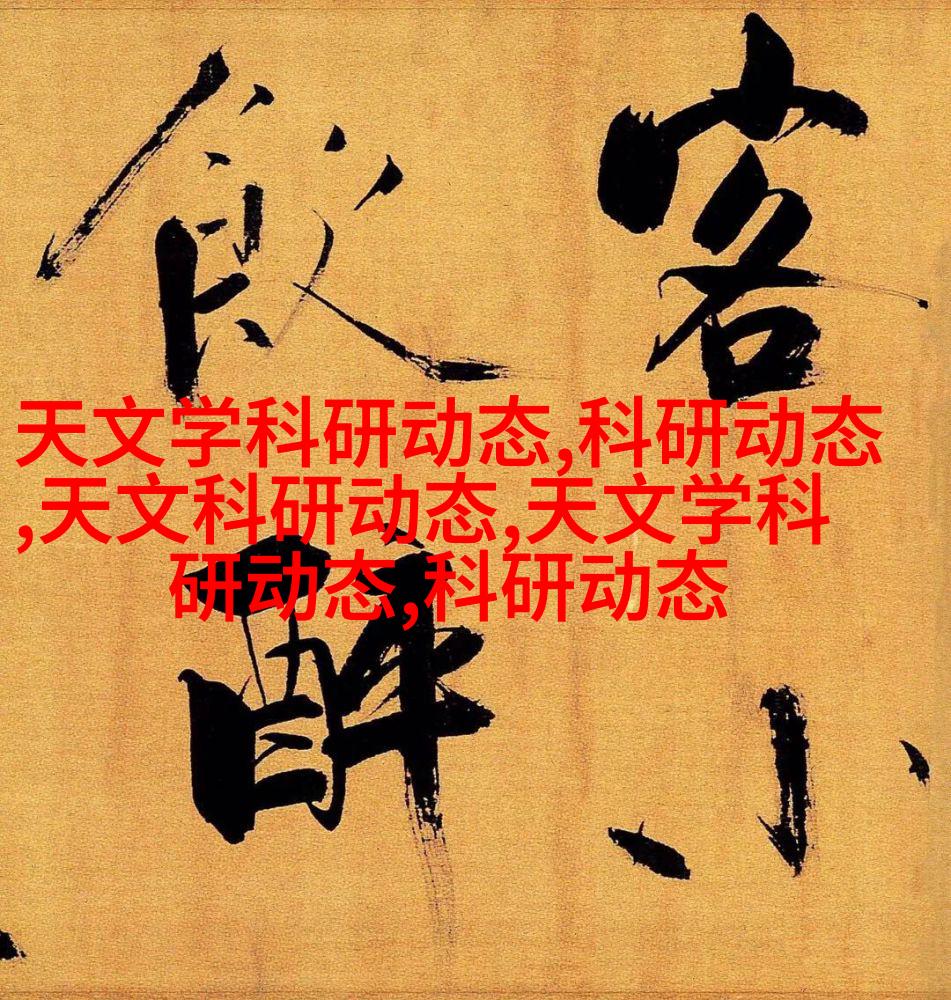 客小
飲醉
天文学科研动态,科研动态
,天文科研动态,天文学科
研动态,科研动态